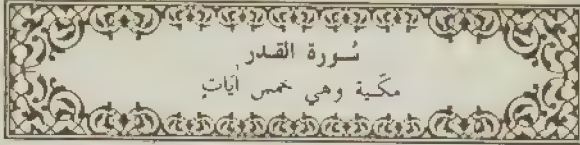 سُورة القدر
مكّية وهي خمس آيَاتٍ